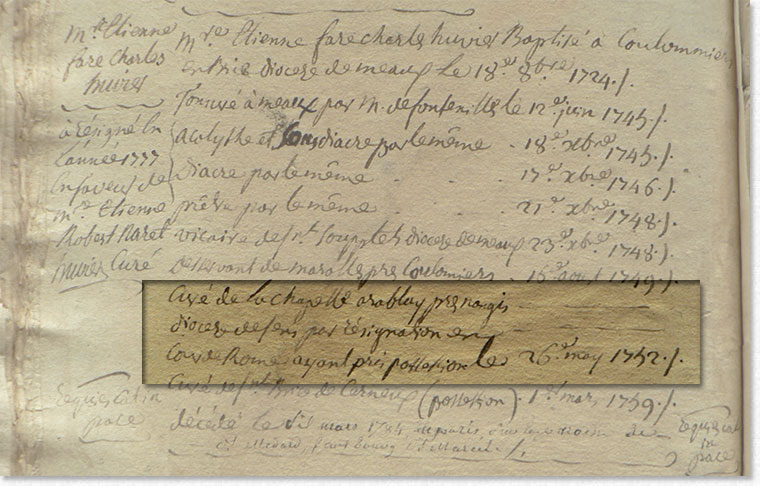 Mre Etienne
fare Charles
huvier
Mre Etienne fare charles huvier Baptisé à Coulommiers
en Brie diocese de meaux Le 18e 8bre 1724 ./.
Tonsuré à meaux par M. de fontenille le 12e juin 1745 ./.
acolythe et sousdiacre par le même . 18e xbre 1745 ./.
Diacre par le même . . . 17e xbre 1746 ./.
prêtre par le même . . . 21e xbre 1748 ./.
vicaire de St Soupplets diocese de meaux 23e xbre 1748 ./.
Desservant de marolles pres Coulomiers . 16e aout 1749 ./.
Curé de la chapelle arablay pres nangis
diocese de sens par résignation en
Cour de Rome ayant pris possession le 26e may 1752 ./.
Curé de St Brice de Cerneux (possession) . 1er mars 1759 ./.
décédé le dit mars 1784 a paris, de
St Medard, faux bourg St Marcel ./.
à résigné En
L'année 1777
En faveur de
mre Etienne
Robert
huvier Curé
Requiescat in
pace
Requiescat
in
pace